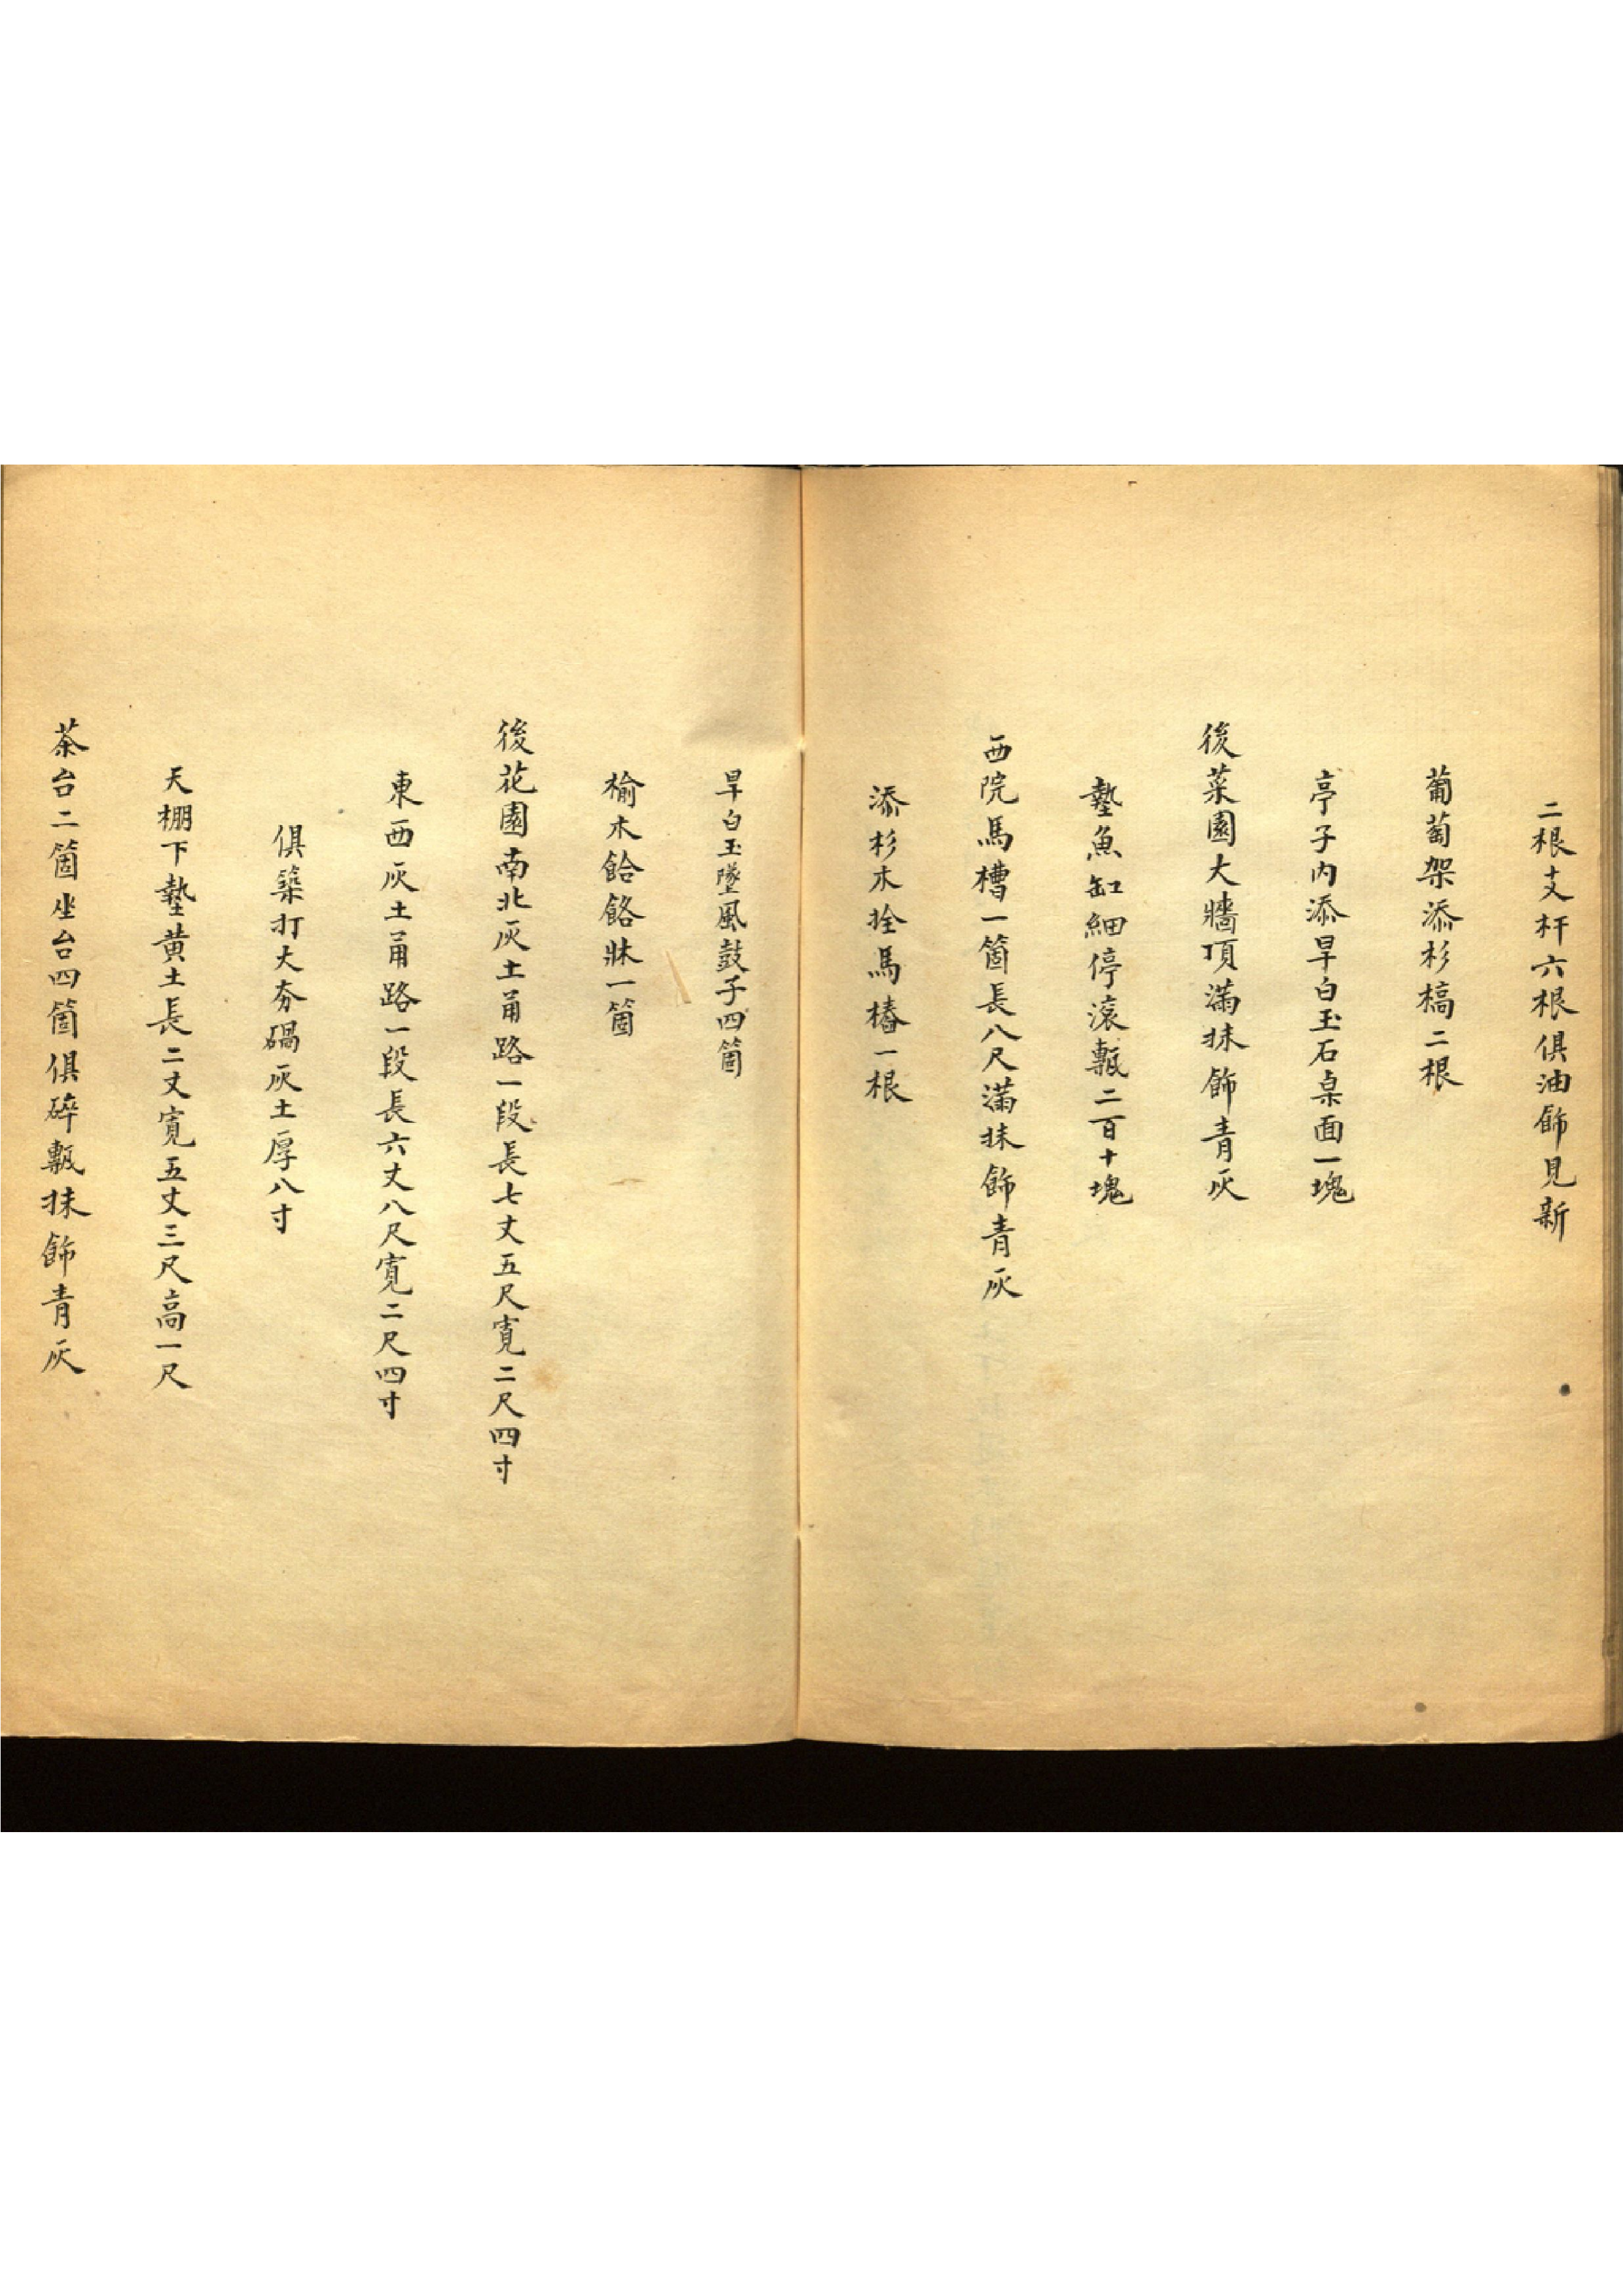 二根支杆六根俱油飾見新
葡萄架添杉槁二根
亭子内添旱白玉石桌面一塊
後菜園大牆頂滿抹飾青灰
墊魚缸細停滚甎二百十塊
西院馬槽一箇長八尺滿抹飾青灰
添杉木拴馬樁一根
旱白玉墜風鼓子四箇
榆木餄餎牀一箇
後花園南北灰土甬路一段長七丈五尺寛二尺四寸
東西灰土甬路一段長六丈八尺寛二尺四寸
俱築打大夯碢灰土厚八寸
天棚下墊黄土長二丈寛五丈三尺高一尺
茶台二箇坐台四箇俱碎甎抹飾青灰